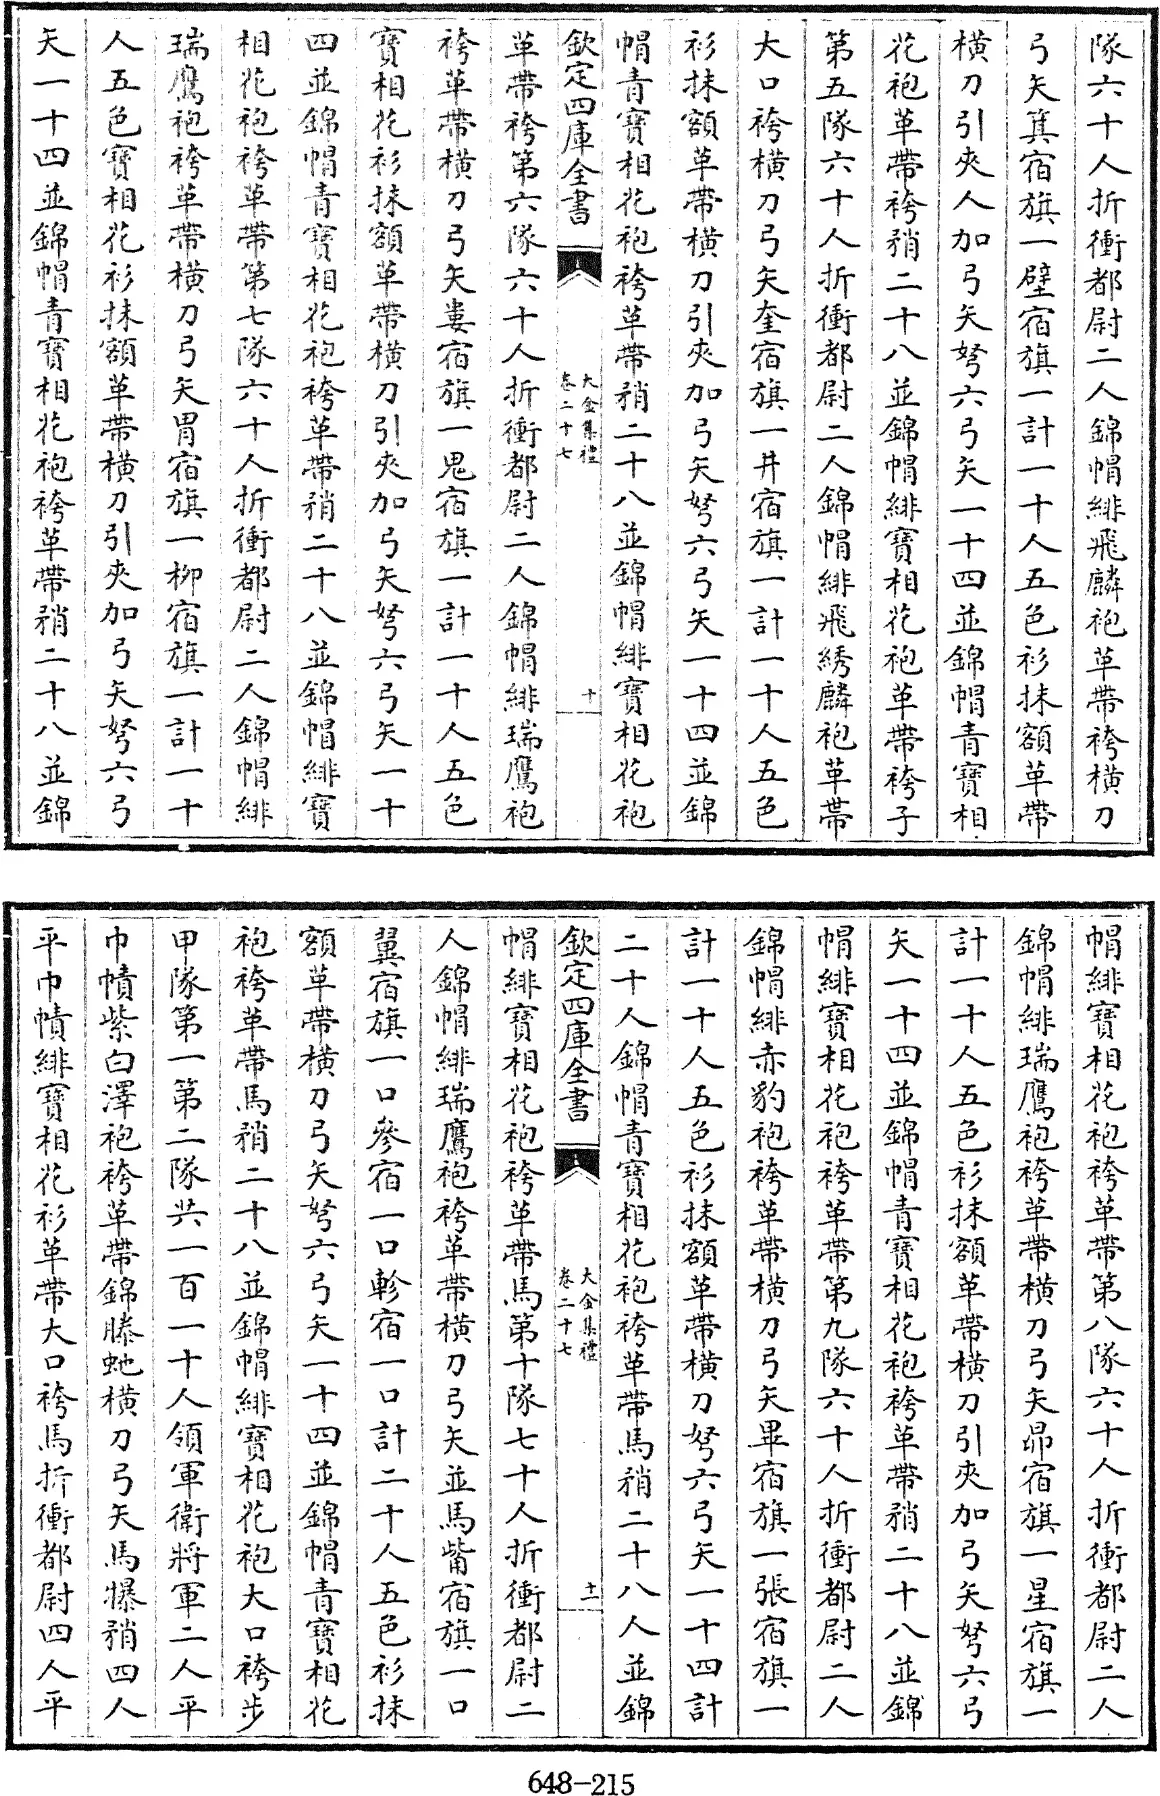 隊六十人折衝都尉二人錦帽緋飛麟袍革帶袴橫刀
弓矢箕宿旗一壁宿旗一計一十人五色衫抹額革帶
橫刀引夾人加弓矢弩六弓矢一十四並錦帽青寶相
花袍革帶袴矟二十八並錦帽緋寶相花袍革帶袴子
第五隊六十人折衝都尉二人錦帽緋飛綉麟袍革帶
大口袴橫刀弓矢奎宿旗一井宿旗一計一十人五色
衫抹額革帶橫刀引夾加弓矢弩六弓矢一十四並錦
帽青寶相花袍袴革帶矟二十八並錦帽緋寶相花袍
欽定四庫全書
大金集禮
卷二十七
十
革帶袴第六隊六十人折衝都尉二人錦帽緋瑞鷹袍
袴革帶橫刀弓矢婁宿旗一鬼宿旗一計一十人五色
寶相花衫抹額革帶橫刀引夾加弓矢弩六弓矢一十
四並錦帽青寶相花袍袴革帶矟二十八並錦帽緋寶
相花袍袴革帶第七隊六十人折衝都尉二人錦帽緋
瑞鷹袍袴革帶橫刀弓矢胃宿旗一柳宿旗一計一十
人五色寶相花衫抹額革帶橫刀引夾加弓矢弩六弓
矢一十四並錦帽青寶相花袍袴革帶矟二十八並錦
帽緋寶相花袍袴革帶第八隊六十人折衝都尉二人
錦帽緋瑞鷹袍袴革帶橫刀弓矢昴宿旗一星宿旗一
計一十人五色衫抹額革帶橫刀引夾加弓矢弩六弓
矢一十四並錦帽青寶相花袍袴革帶矟二十八並錦
帽緋寶相花袍袴革帶第九隊六十人折衝都尉二人
錦帽緋赤豹袍袴革帶橫刀弓矢畢宿旗一張宿旗一
計一十人五色衫抹額革帶橫刀弩六弓矢一十四計
二十人錦帽青寶相花袍袴革帶馬矟二十八人並錦
欽定四庫全書
大金集禮
卷二十七
十一
帽緋寶相花袍袴革帶馬第十隊七十人折衝都尉二
人錦帽緋瑞鷹袍袴革帶橫刀弓矢並馬觜宿旗一口
翼宿旗一口參宿一口軫宿一口計二十人五色衫抹
額革帶橫刀弓矢弩六弓矢一十四並錦帽青寶相花
袍袴革帶馬矟二十八並錦帽緋寶相花袍大口袴步
甲隊第一第二隊共一百一十人領軍衛將軍二人平
巾幘紫白澤袍袴革帶錦螣虵橫刀弓矢馬𤛗矟四人
平巾幘緋寶相花衫革帶大口袴馬折衝都尉四人平
648-215